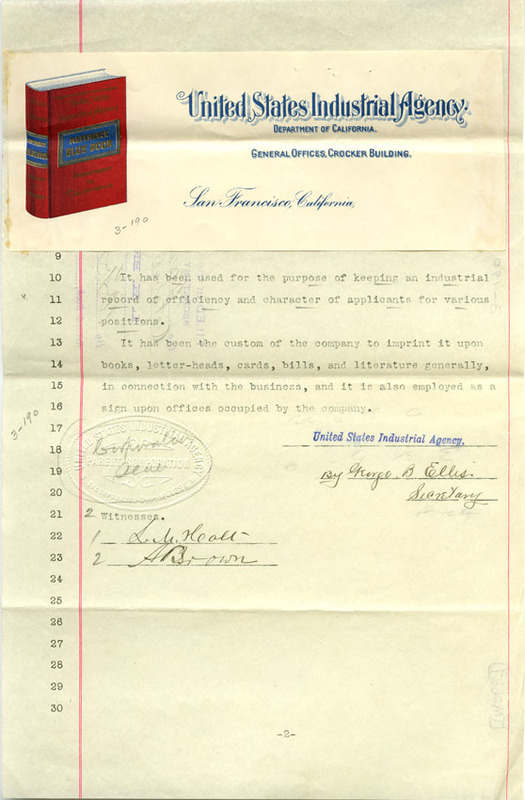 NATIONAL
BLUE BOOK
United States Industrial Agency.
DEPARTMENT OF CALIFORNIA.
GENERAL OFFICES, CROCKER BUILDING.
San Francisco, California,
3-190
9
10 It has been used for the purpose of keeping an industrial
11 record of efficiency and character of applicants for various
12 positions.
13 It has been the custom of the company to imprint it upon
14 books, letter-heads, cards, bills, and literature generally,
15 in connection with the business, and it is also employed as a
16 sign upon offices occupied by the company.
3-190
17 United States Industrial Agency.
18 Corporate
19 Seal By George B Ellis
20 Secretary
21 2 Witnesses.
22 1 L. M. Hoalt
23 2 A Brown
24
25
26
27
28
29
30
-2-